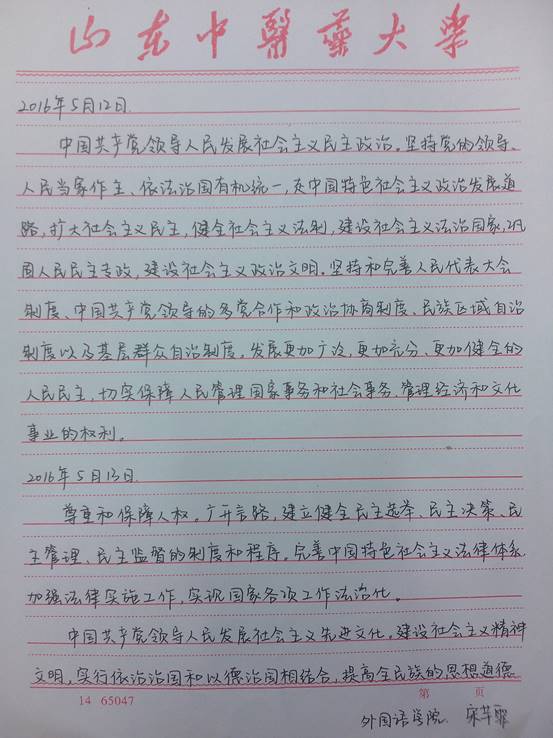 山东中医药大学
2016年5月12日.
中国共产党领导人民发展社会主义民主政治。坚持党的领导、
人民当家作主、依法治国有机统一,走中国特色社会主义政治发展道
路,扩大社会主义民主,健全社会主义法制,建设社会主义法治国家,巩
固人民民主专政,建设社会主义政治文明。坚持和完善人民代表大会
制度、中国共产党领导的多党合作和政治协商制度、民族区域自治
制度以及基层群众自治制度。发展更加广泛、更加充分、更加健全的
人民民主,切实保障人民管理国家事务和社会事务、管理经济和文化
事业的权利。
2016年5月13日.
尊重和保障人权。广开言路,建立健全民主选举、民主决策、民
主管理、民主监督的制度和程序。完善中国特色社会主义法律体系,
加强法律实施工作,实现国家各项工作法治化。
中国共产党领导人民发展社会主义先进文化。建设社会主义精神
文明,实行依法治国和以德治国相结合,提高全民族的思想道德
14 65047 第 页
外国语学院 宋